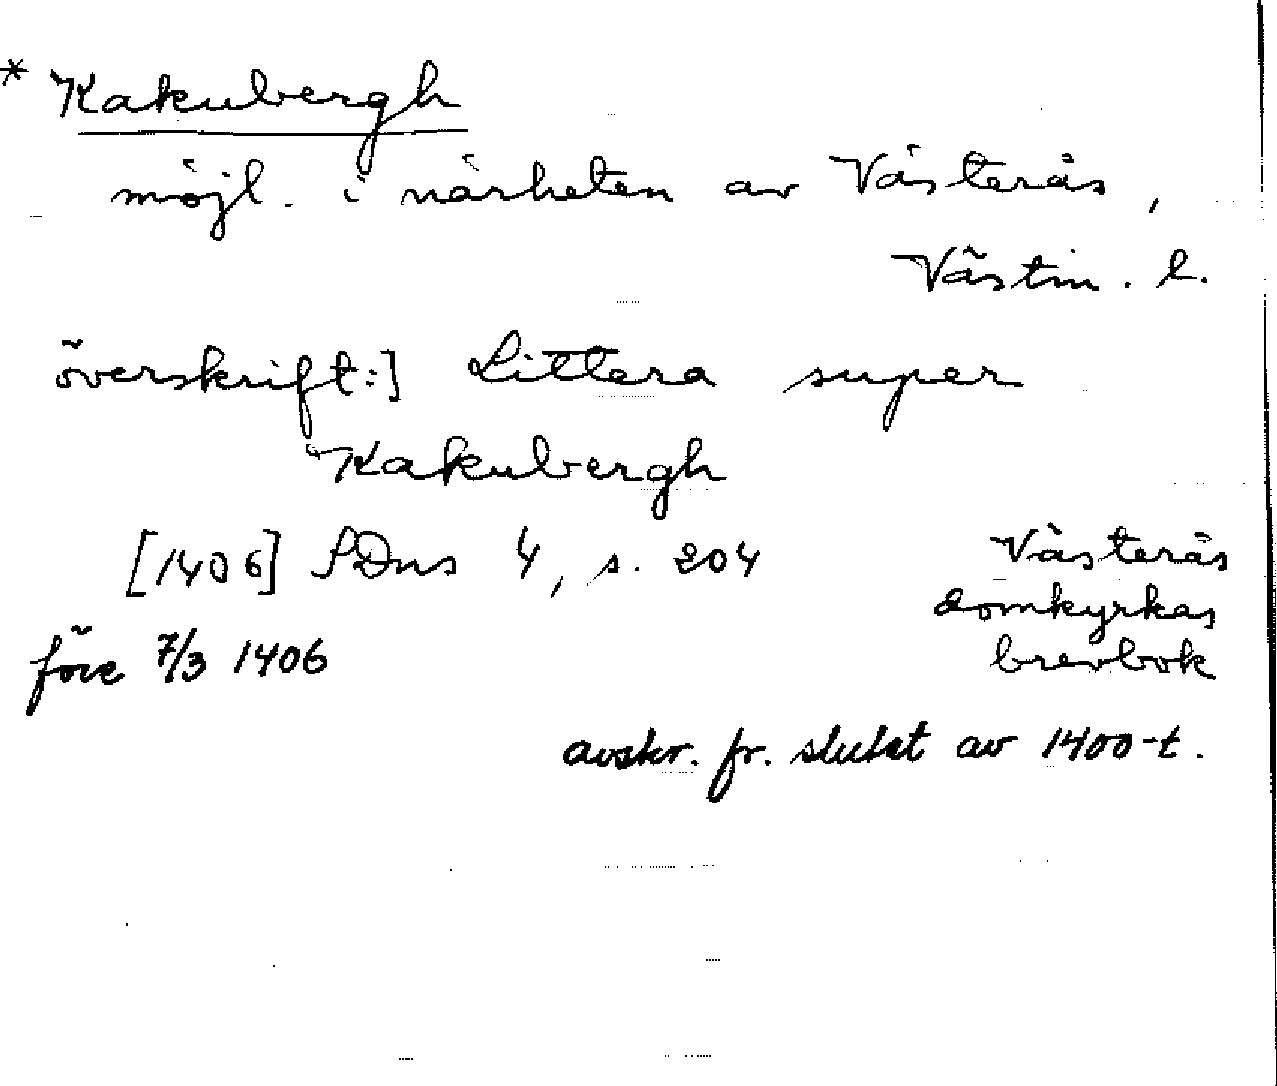 * Kakubergh
möjl. i närheten av Västerås,
Västm. l.
överskrift:] Littera super
Kakubergh
[1406] SDns 4, s. 204
Västerås
domkyrkas
brevbok
före 7/3 1406
avskr. fr. slutet av 1400-t.